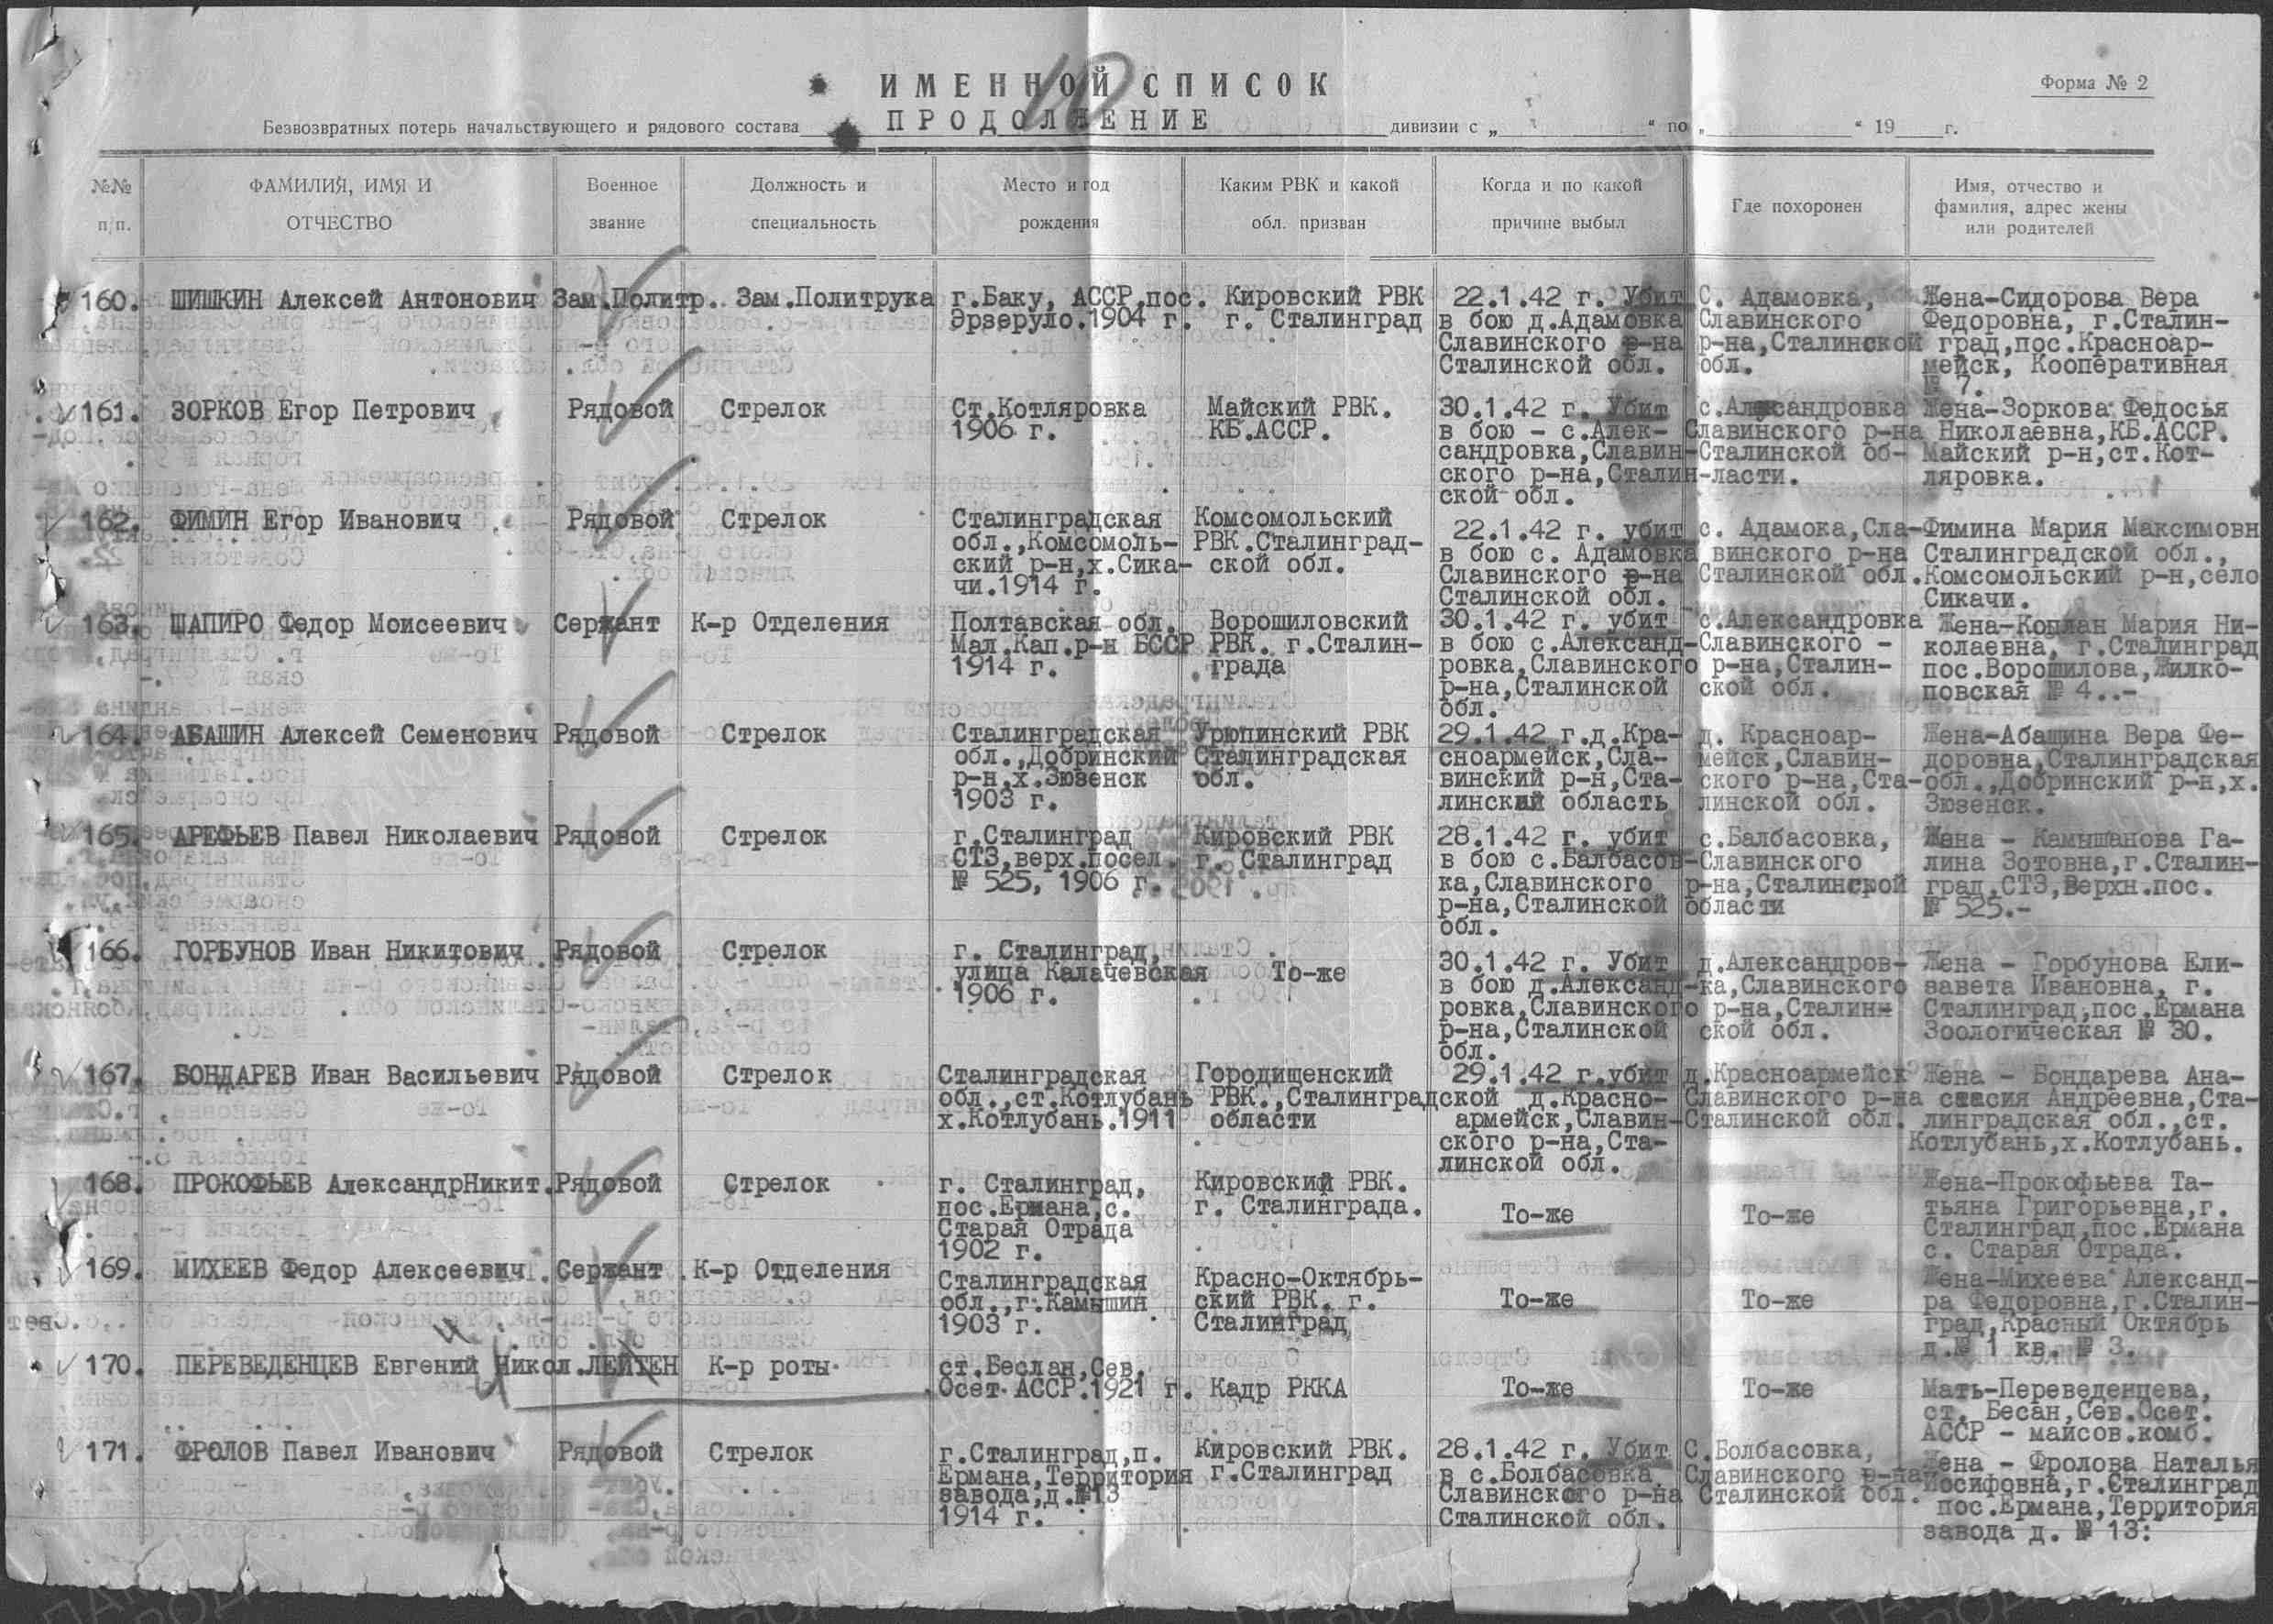 ИМЕННОЙ СПИСОК
Форма № 2
Безвозвратных потерь начальствующего и рядового состава ПРОДОЛЖЕНИЕ дивизии с „ “ по „ “ 19 г.
№№ п/п.
ФАМИЛИЯ, ИМЯ И
ОТЧЕСТВО
Военное
звание
Должность и
специальность
Место и год
рождения
Каким РВК и какой
обл. призван
Когда и по какой
причине выбыл
Где похоронен
Имя, отчество и
фамилия, адрес жены
или родителей
160. ШИШКИН Алексей Антонович
Зам.Политр.
Зам.Политрука
г.Баку, АССР,пос.
Эрзеруло.1904 г.
Кировский РВК
г. Сталинград
22.1.42 г. Убит
в бою д.Адамовка
Славинского р-на
Сталинской обл.
С. Адамовка,
Славинского
р-на,Сталинской
обл.
Жена-Сидорова Вера
Федоровна, г.Сталин-
град,пос.Красноар-
мейск, Кооперативная
№ 7.
161. ЗОРКОВ Егор Петрович
Рядовой
Стрелок
Ст.Котляровка
1906 г.
Майский РВК.
КБ.АССР.
30.1.42 г. Убит
в бою - с.Алек-
сандровка,Славин-
ского р-на,Сталин-
ской обл.
с.Александровка
Славинского р-на
Сталинской об-
ласти.
Жена-Зоркова Федосья
Николаевна,КБ.АССР.
Майский р-н,ст.Кот-
ляровка.
162. ФИМИН Егор Иванович
Рядовой
Стрелок
Сталинградская
обл.,Комсомоль-
ский р-н,х.Сика-
чи.1914 г.
Комсомольский
РВК.Сталинград-
ской обл.
22.1.42 г. убит
в бою с. Адамовка
Славинского р-на
Сталинской обл.
с. Адамока,Сла-
винского р-на
Сталинской обл.
Фимина Мария Максимовн
Сталинградской обл.,
Комсомольский р-н,село
Сикачи.
163. ШАПИРО Федор Моисеевич
Сержант
К-р Отделения
Полтавская обл.
Мал.Кап.р-н БССР
1914 г.
Ворошиловский
РВК. г.Сталин-
града
30.1.42 г. убит
в бою с.Александ-
ровка,Славинского
р-на,Сталинской
обл.
с.Александровка
Славинского -
р-на,Сталин-
ской обл.
Жена-Коплан Мария Ни-
колаевна, г.Сталинград
пос.Ворошилова,Жилко-
повская № 4..-
164. АБАШИН Алексей Семенович
Рядовой
Стрелок
Сталинградская
обл.,Добринский
р-н,х.Зювенск
1903 г.
Урюпинский РВК
Сталинградская
обл.
29.1.42 г.д.Кра-
сноармейск,Сла-
винский р-н,Ста-
линский область
д. Красноар-
мейск,Славин-
ского р-на,Ста-
линской обл.
Жена-Абашина Вера Фе-
доровна,Сталинградская
обл.,Добринский р-н,х.
Зюзенск.
165. АРЕФЬЕВ Павел Николаевич
Рядовой
Стрелок
г.Сталинград
СТЗ,верх.посел.
№ 525, 1906 г.
Кировский РВК
г. Сталинград
28.1.42 г. убит
в бою с.Балбасов-
ка,Славинского
р-на,Сталинской
обл.
с.Балбасовка,
Славинского
р-на,Сталинской
области
Жена - Камышанова Га-
лина Зотовна,г.Сталин-
град,СТЗ,Верхн.пос.
№ 525.-
166. ГОРБУНОВ Иван Никитович
Рядовой
Стрелок
г. Сталинград,
улица Калачевская
1906 г.
То-же
30.1.42 г. Убит
в бою д.Александ-
ровка,Славинского
р-на,Сталинской
обл.
д.Александров-
ка,Славинского
р-на,Сталин-
ской обл.
Жена - Горбунова Ели-
завета Ивановна, г.
Сталинград,пос.Ермана
Зоологическая № 30.
167. БОНДАРЕВ Иван Васильевич
Рядовой
Стрелок
Сталинградская
обл.,ст.Котлубань
х.Котлубань.1911
Городищенский
РВК.,Сталинградской
области
29.1.42 г.убит
д.Красно-
армейск,Славин-
ского р-на,Ста-
линской обл.
д.Красноармейск
Славинского р-на
Сталинской обл.
Жена - Бондарева Ана-
стасия Андреевна,Ста-
линградская обл.,ст.
Котлубань,х.Котлубань.
168. ПРОКОФЬЕВ АлександрНикит.
Рядовой
Стрелок
г. Сталинград,
пос.Ермана,с.
Старая Отрада
1902 г.
Кировский РВК.
г. Сталинграда.
То-же
То-же
Жена-Прокофьева Та-
тьяна Григорьевна,г.
Сталинград,пос.Ермана
с. Старая Отрада.
169. МИХЕЕВ Федор Алексеевич.
Сержант
К-р Отделения
Сталинградская
обл.,г.Камышин
1903 г.
Красно-Октябрь-
ский РВК. г.
Сталинград
То-же
То-же
Жена-Михеева Александ-
ра Федоровна,г.Сталин-
град,Красный Октябрь
д.№ 1 кв. № 3.
170. ПЕРЕВЕДЕНЦЕВ Евгений Никол.
ЛЕЙТЕН
К-р роты
ст.Беслан,Сев.
Осет.АССР.1921 г.
Кадр РККА
То-же
То-же
Мать-Переведенцева,
ст. Бесан,Сев.Осет.
АССР - маисов.комб.
171. ФРОЛОВ Павел Иванович
Рядовой
Стрелок
г.Сталинград,п.
Ермана,Территория
завода,д.№13
1914 г.
Кировский РВК.
г.Сталинград
28.1.42 г. Убит
в с.Болбасовка,
Славинского р-на
Сталинской обл.
С.Болбасовка,
Славинского р-на
Сталинской обл.
Жена - Фролова Наталья
Иосифовна,г.Сталинград
пос.Ермана,Территория
завода д. № 13: